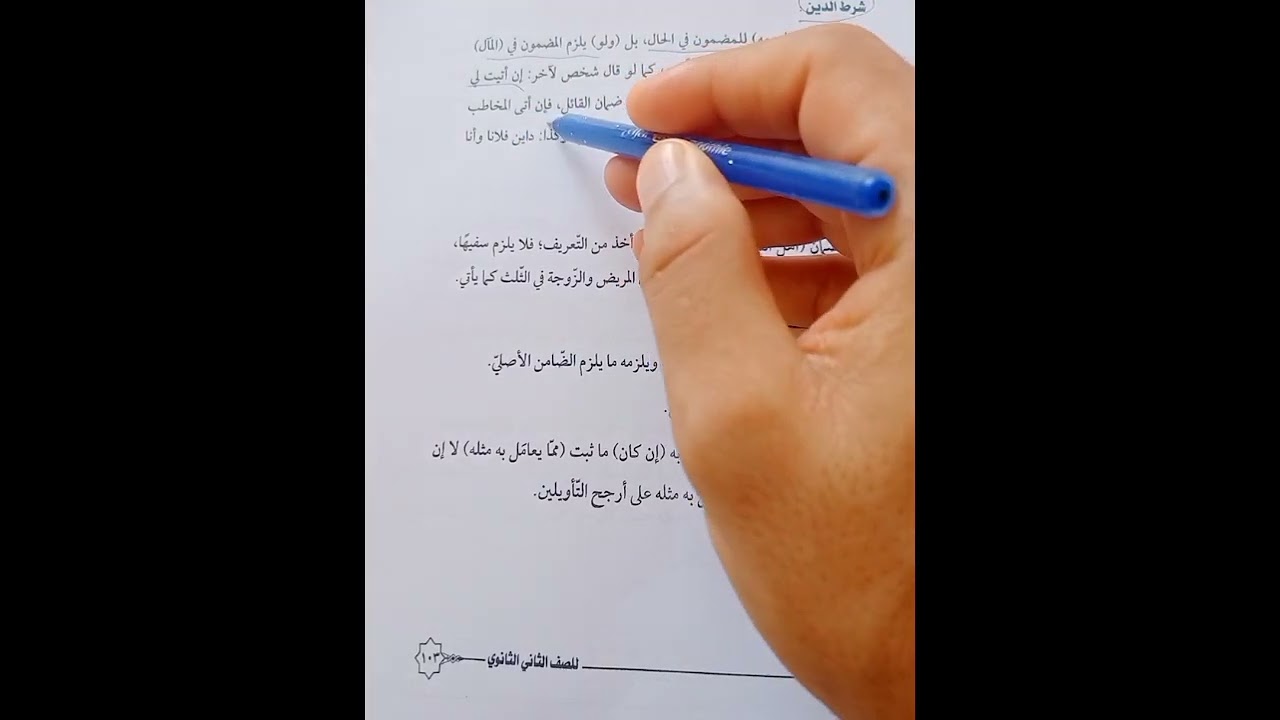 شرط الدين
للمضمون في الحال، بل (ولو) يلزم المضمون في (المآل)
كما لو قال شخص لآخر: إن أتيت لي
ضمان القائل، فإن أتى المخاطب
داين فلانا وأنا
أخذ من التّعريف؛ فلا يلزم سفيهًا،
المريض والزّوجة في الثّلث كما يأتي.
ويلزمه ما يلزم الضّامن الأصليّ.
به (إن كان) ما ثبت (ممّا يعامَل به مثله) لا إن
به مثله على أرجح التّأويلين.
للصف الثاني الثانوي
١٠٣